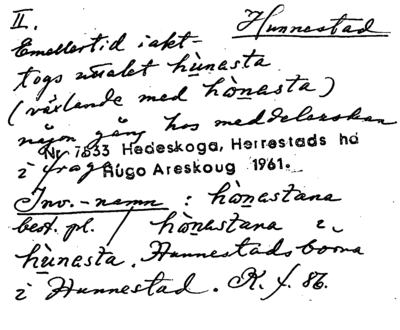 II.
Hunnestad
Emellertid iakt-
togs uttalet hùnasta
(växlande med hònasta)
någon gång hos meddelerskan
Nr 7833 Hedeskoga, Herrestads hd
i fråga
Hugo Areskoug 1961.
Inv.-namn : hònastana
best. pl. / hònastana i
hùnasta. Hunnestadsborna
i Hunnestad. R. f. 86.